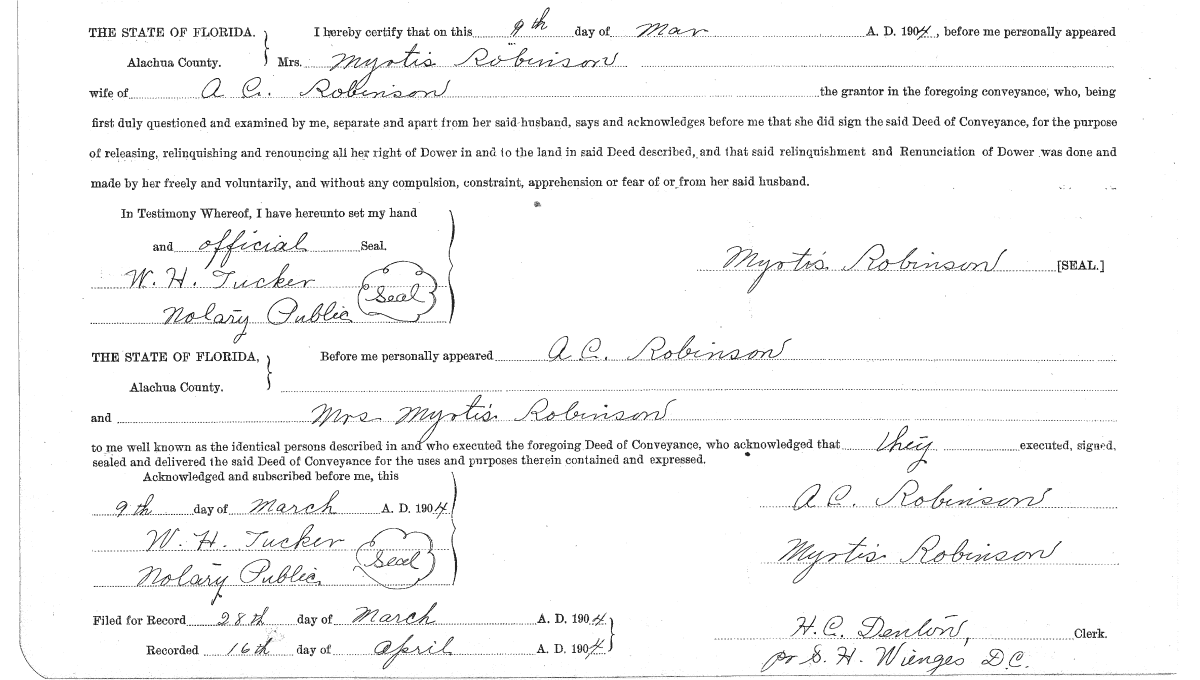 THE STATE OF FLORIDA. } I hereby certify that on this 9th day of Mar A. D. 1904, before me personally appeared
Alachua County. Mrs. Myrtis Robinson
wife of A C. Robinson the grantor in the foregoing conveyance, who, being
first duly questioned and examined by me, separate and apart from her said husband, says and acknowledges before me that she did sign the said Deed of Conveyance, for the purpose
of releasing, relinquishing and renouncing all her right of Dower in and to the land in said Deed described, and that said relinquishment and Renunciation of Dower was done and
made by her freely and voluntarily, and without any compulsion, constraint, apprehension or fear of or from her said husband.
In Testimony Whereof, I have hereunto set my hand
and official Seal.
Myrtis Robinson [SEAL.]
W. H. Tucker Seal
Notary Public
THE STATE OF FLORIDA, } Before me personally appeared A C. Robinson
Alachua County.
and Mrs Myrtis Robinson
to me well known as the identical persons described in and who executed the foregoing Deed of Conveyance, who acknowledged that they executed, signed,
sealed and delivered the said Deed of Conveyance for the uses and purposes therein contained and expressed.
Acknowledged and subscribed before me, this
9th day of March A. D. 1904 A C. Robinson
W. H. Tucker Seal Myrtis Robinson
Notary Public
Filed for Record 28th day of March A. D. 1904 }
H. C. Denton, Clerk.
Recorded 16th day of April A. D. 1904
pr S. H. Wienges D.C.